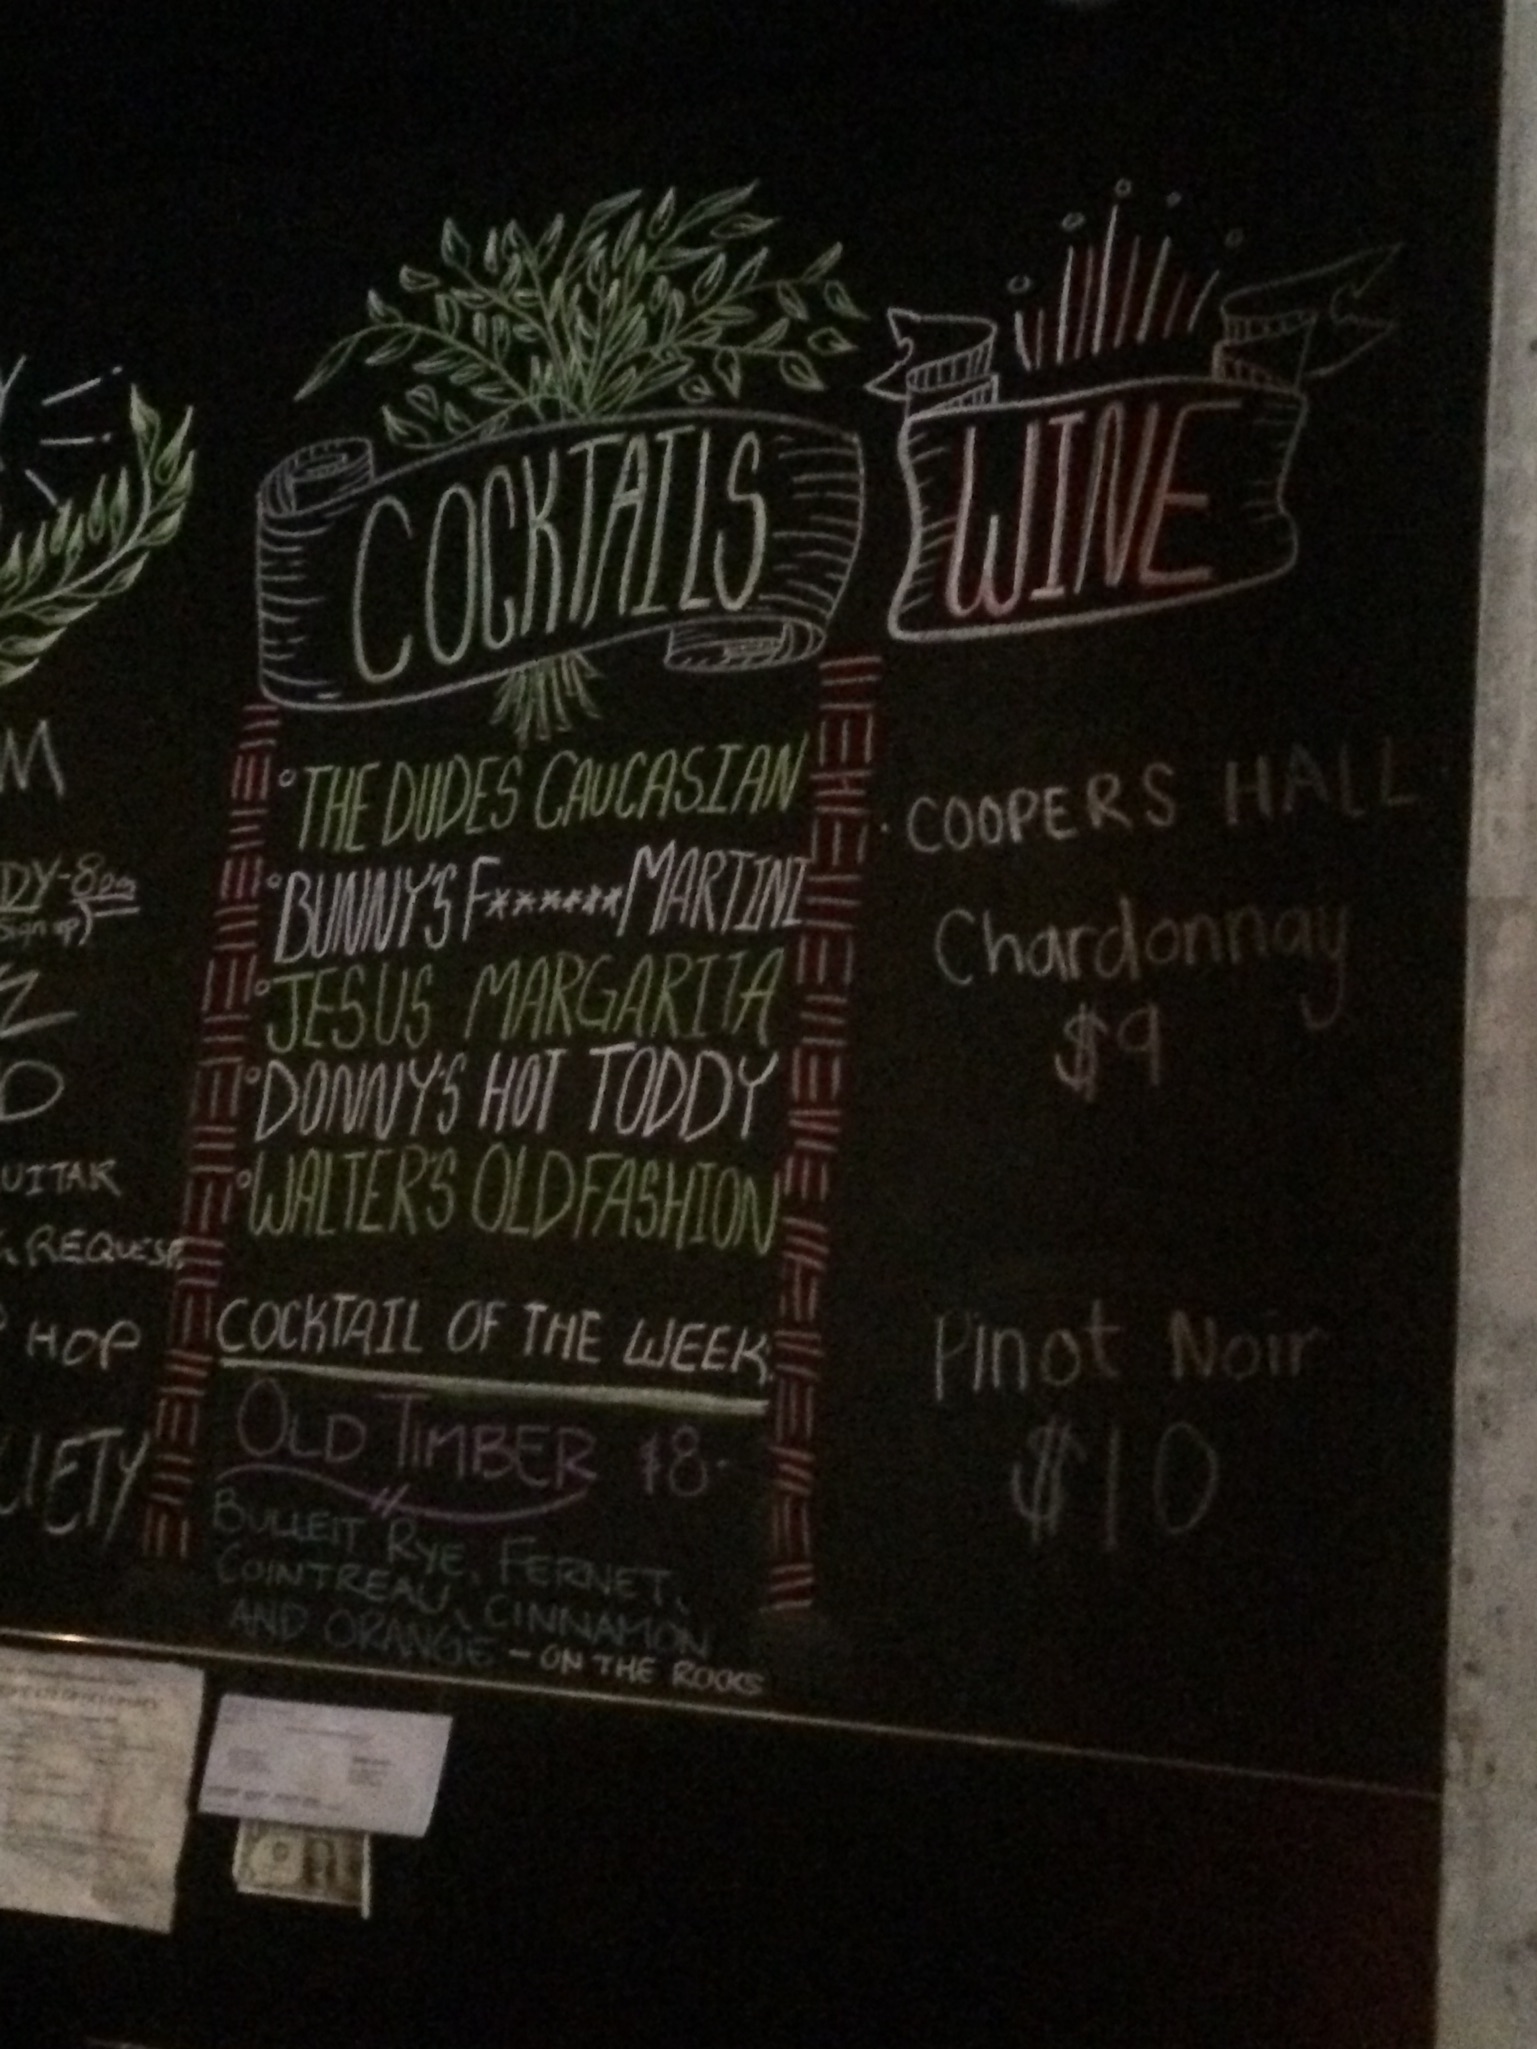 COCKTAILS
°THE DUDES CAUCASIAN
°BUNNY'S F****** MARTINI
°JESUS MARGARITA
°DONNY'S HOT TODDY
°WALTER'S OLDFASHION
COCKTAIL OF THE WEEK
OLD TIMBER $8-
BULLEIT RYE, FERNET,
COINTREAU, CINNAMON
AND ORANGE - ON THE ROCKS
WINE
· COOPERS HALL
Chardonnay
$9
Pinot Noir
$10
M
DY-8pm
sign up)
Z
O
UITAR
REQUEST
HOP
IETY